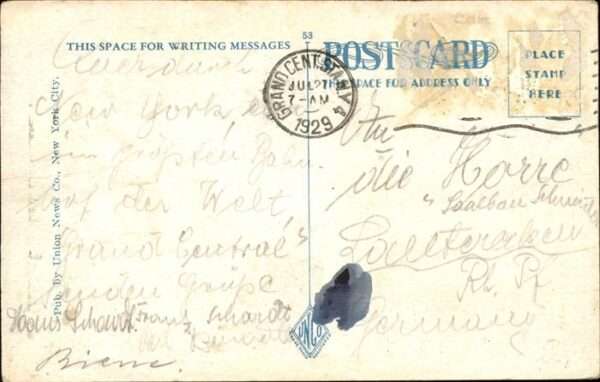 53
THIS SPACE FOR WRITING MESSAGES
POST CARD
THIS SPACE FOR ADDRESS ONLY
PLACE
STAMP
HERE
GRAND CENT. STA. N.Y.
JUL 27
7-AM
1929
Pub. By Union News Co., New York City.
New York
im größten Bahn
hof der Welt
"Grand Central"
senden Grüße
Hans Schardt Franz Schardt
An
die Herre
"Saalbau
Rh. Pf.
Germany
UNCO